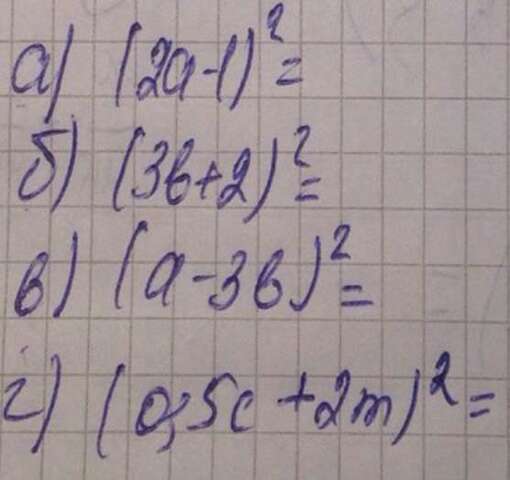 а) (2a-1)²=
б) (3b+2)²=
в) (a-3b)²=
г) (0,5c+2m)²=